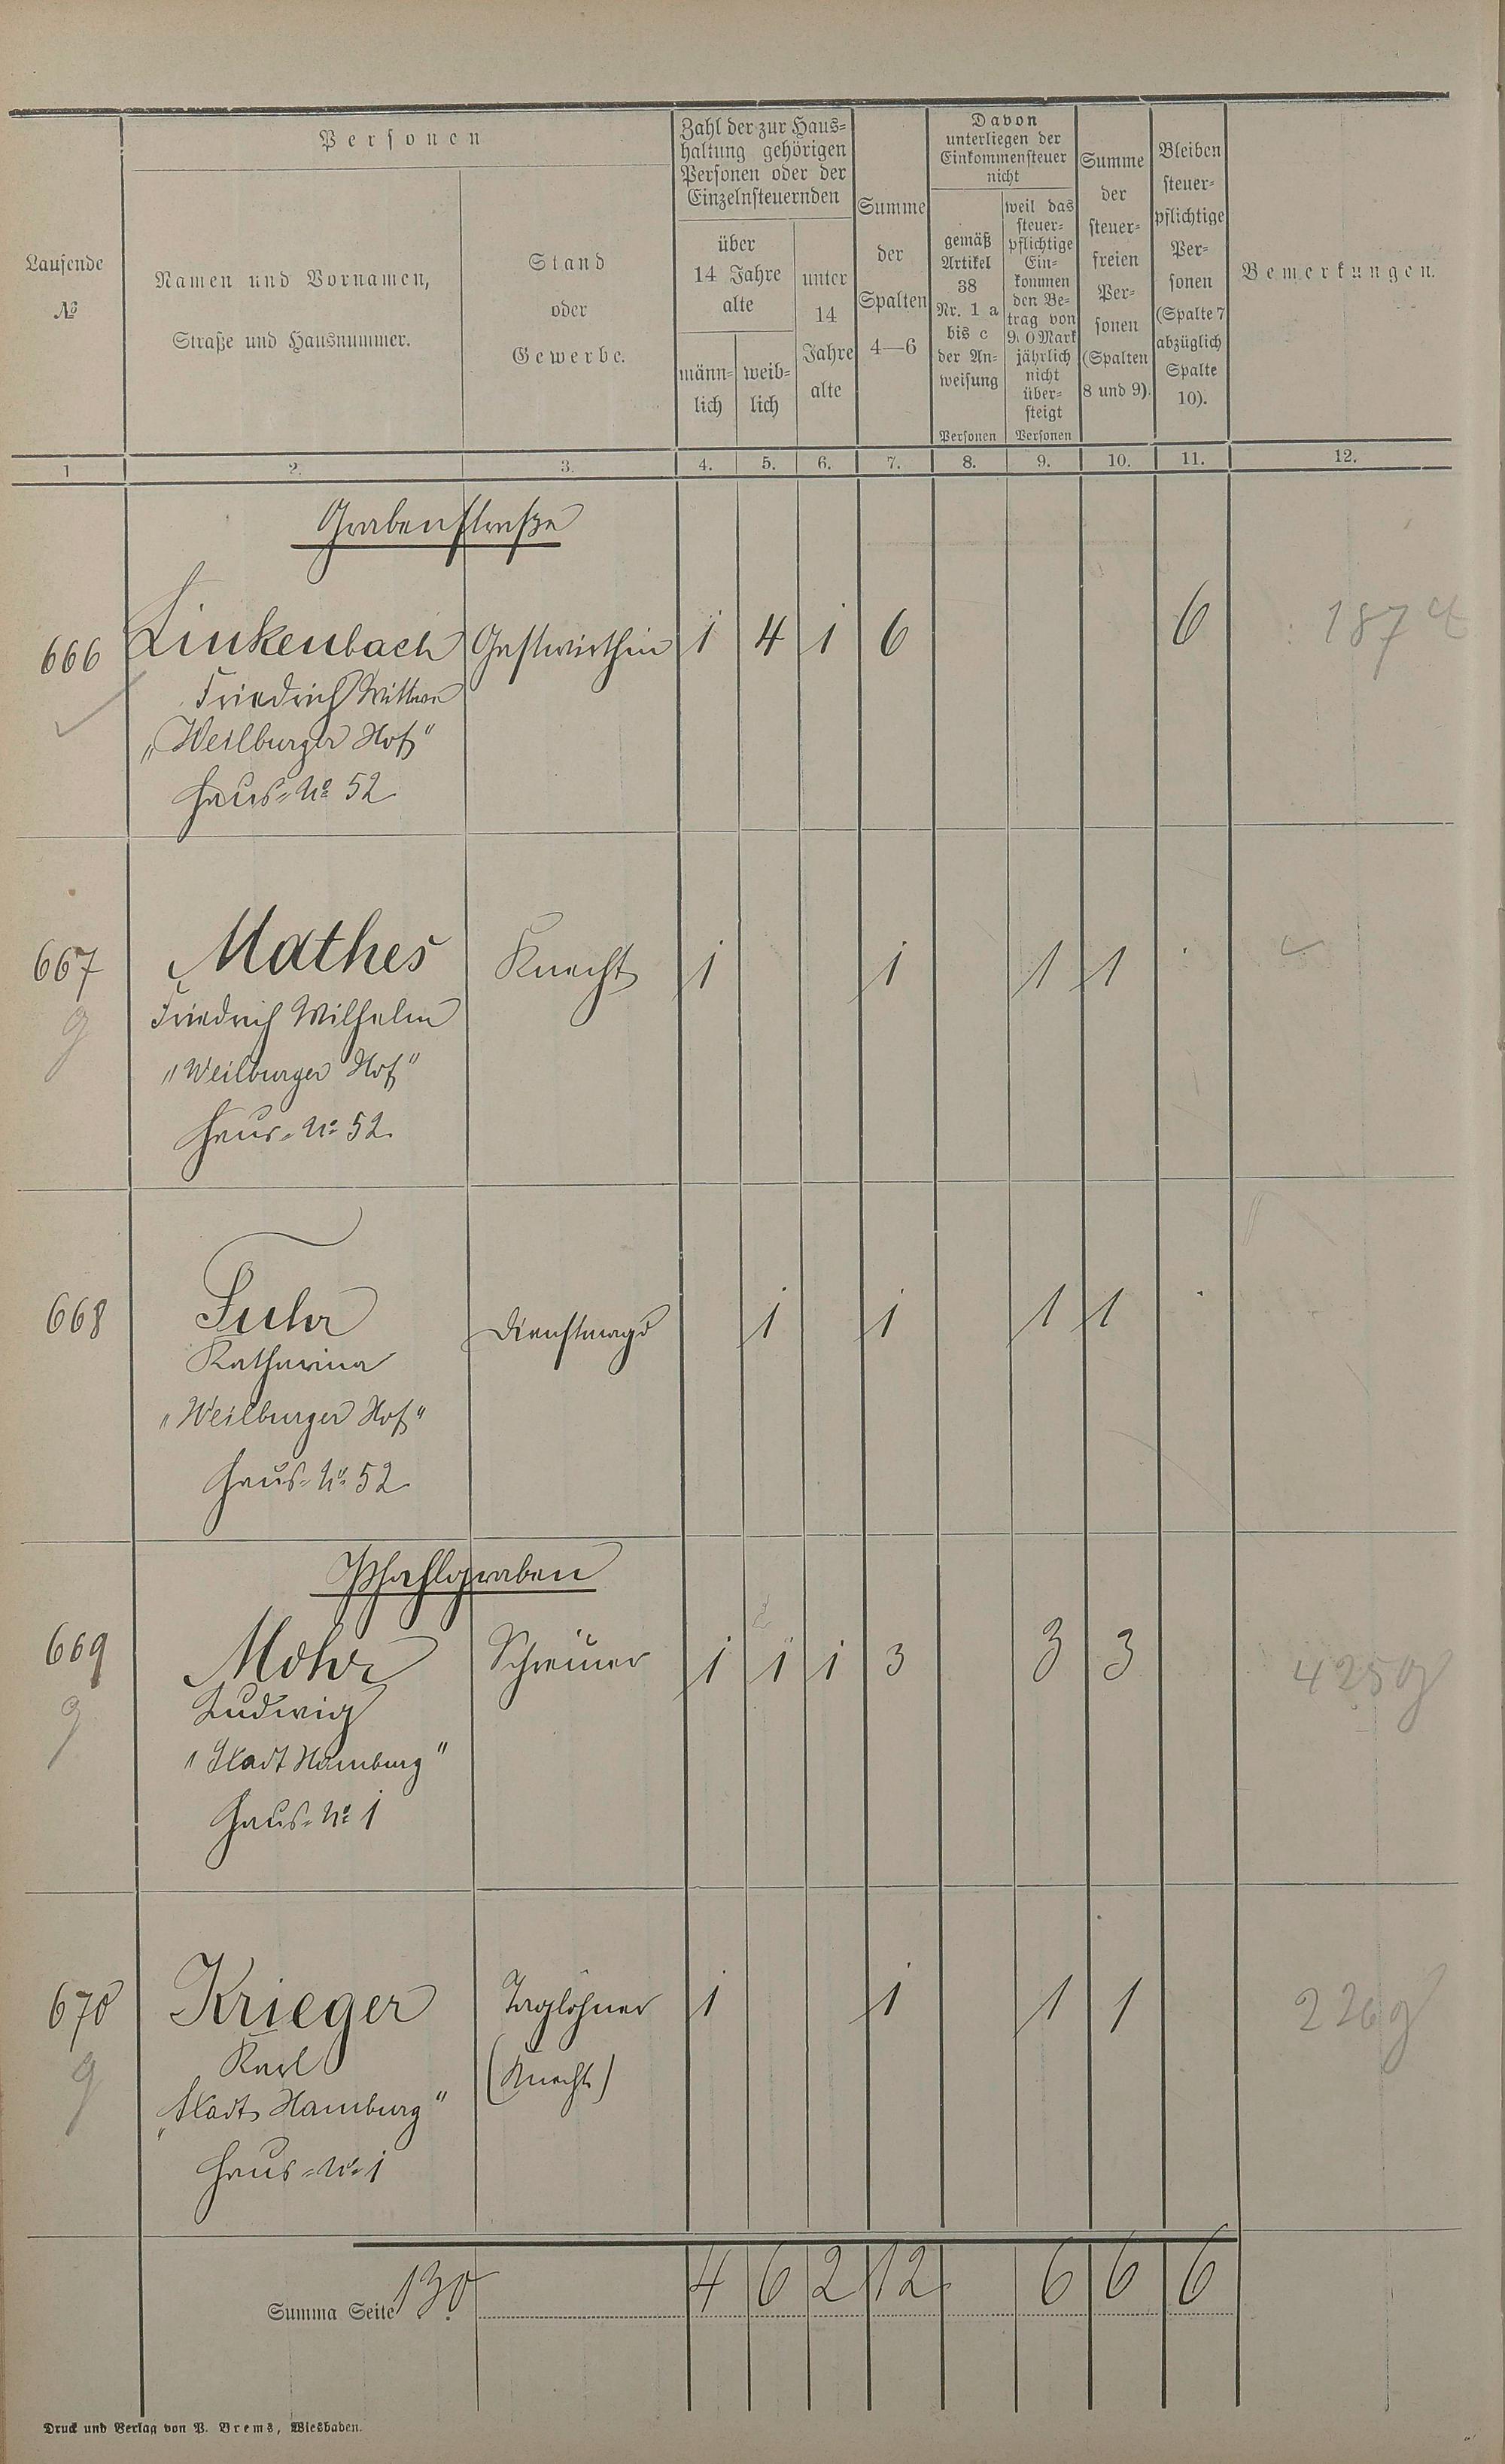 Laufende
№
Personen
Namen und Vornamen,
Straße und Hausnummer.
Stand
oder
Gewerbe.
Zahl der zur Haus=
haltung gehörigen
Personen oder der
Einzelnsteuernden
über
14 Jahre
alte
männ=
lich
weib=
lich
unter
14
Jahre
alte
Summe
der
Spalten
4—6
Davon
unterliegen der
Einkommensteuer
nicht
gemäß
Artikel
38
Nr. 1 a
bis c
der An=
weisung
Personen
weil das
steuer=
pflichtige
Ein=
kommen
den Be=
trag von
900 Mark
jährlich
nicht
über=
steigt
Personen
Summe
der
steuer=
freien
Per=
sonen
(Spalten
8 und 9).
Bleiben
steuer=
pflichtige
Per=
sonen
(Spalte 7
abzüglich
Spalte
10).
Bemerkungen.
1 2. 3. 4. 5. 6. 7. 8. 9. 10. 11. 12.
Grabenstraße
666 Linkenbach Gastwirthin 1 4 1 6 6 187
Friedrich Wittwe
„Weilburger Hof"
Haus=№ 52
667 Mathes Knecht 1 1 1 1
g Friedrich Wilhelm
„Weilburger Hof"
Haus=№ 52.
668 Fuhr Dienstmagd 1 1 1 1
Katharina
„Weilburger Hof"
Haus=№ 52
Pfahlgraben
669 Mohr Schreiner 1 1 1 3 3 3 425 g
g Ludwig
„Stadt Hamburg"
Haus=№ 1
670 Krieger Taglöhner 1 1 1 1 226 g
g Karl (Knecht)
„Stadt Hamburg"
Haus=№ 1
Summa Seite 130 4 6 2 12 6 6 6
Druck und Verlag von P. Brems, Wiesbaden.